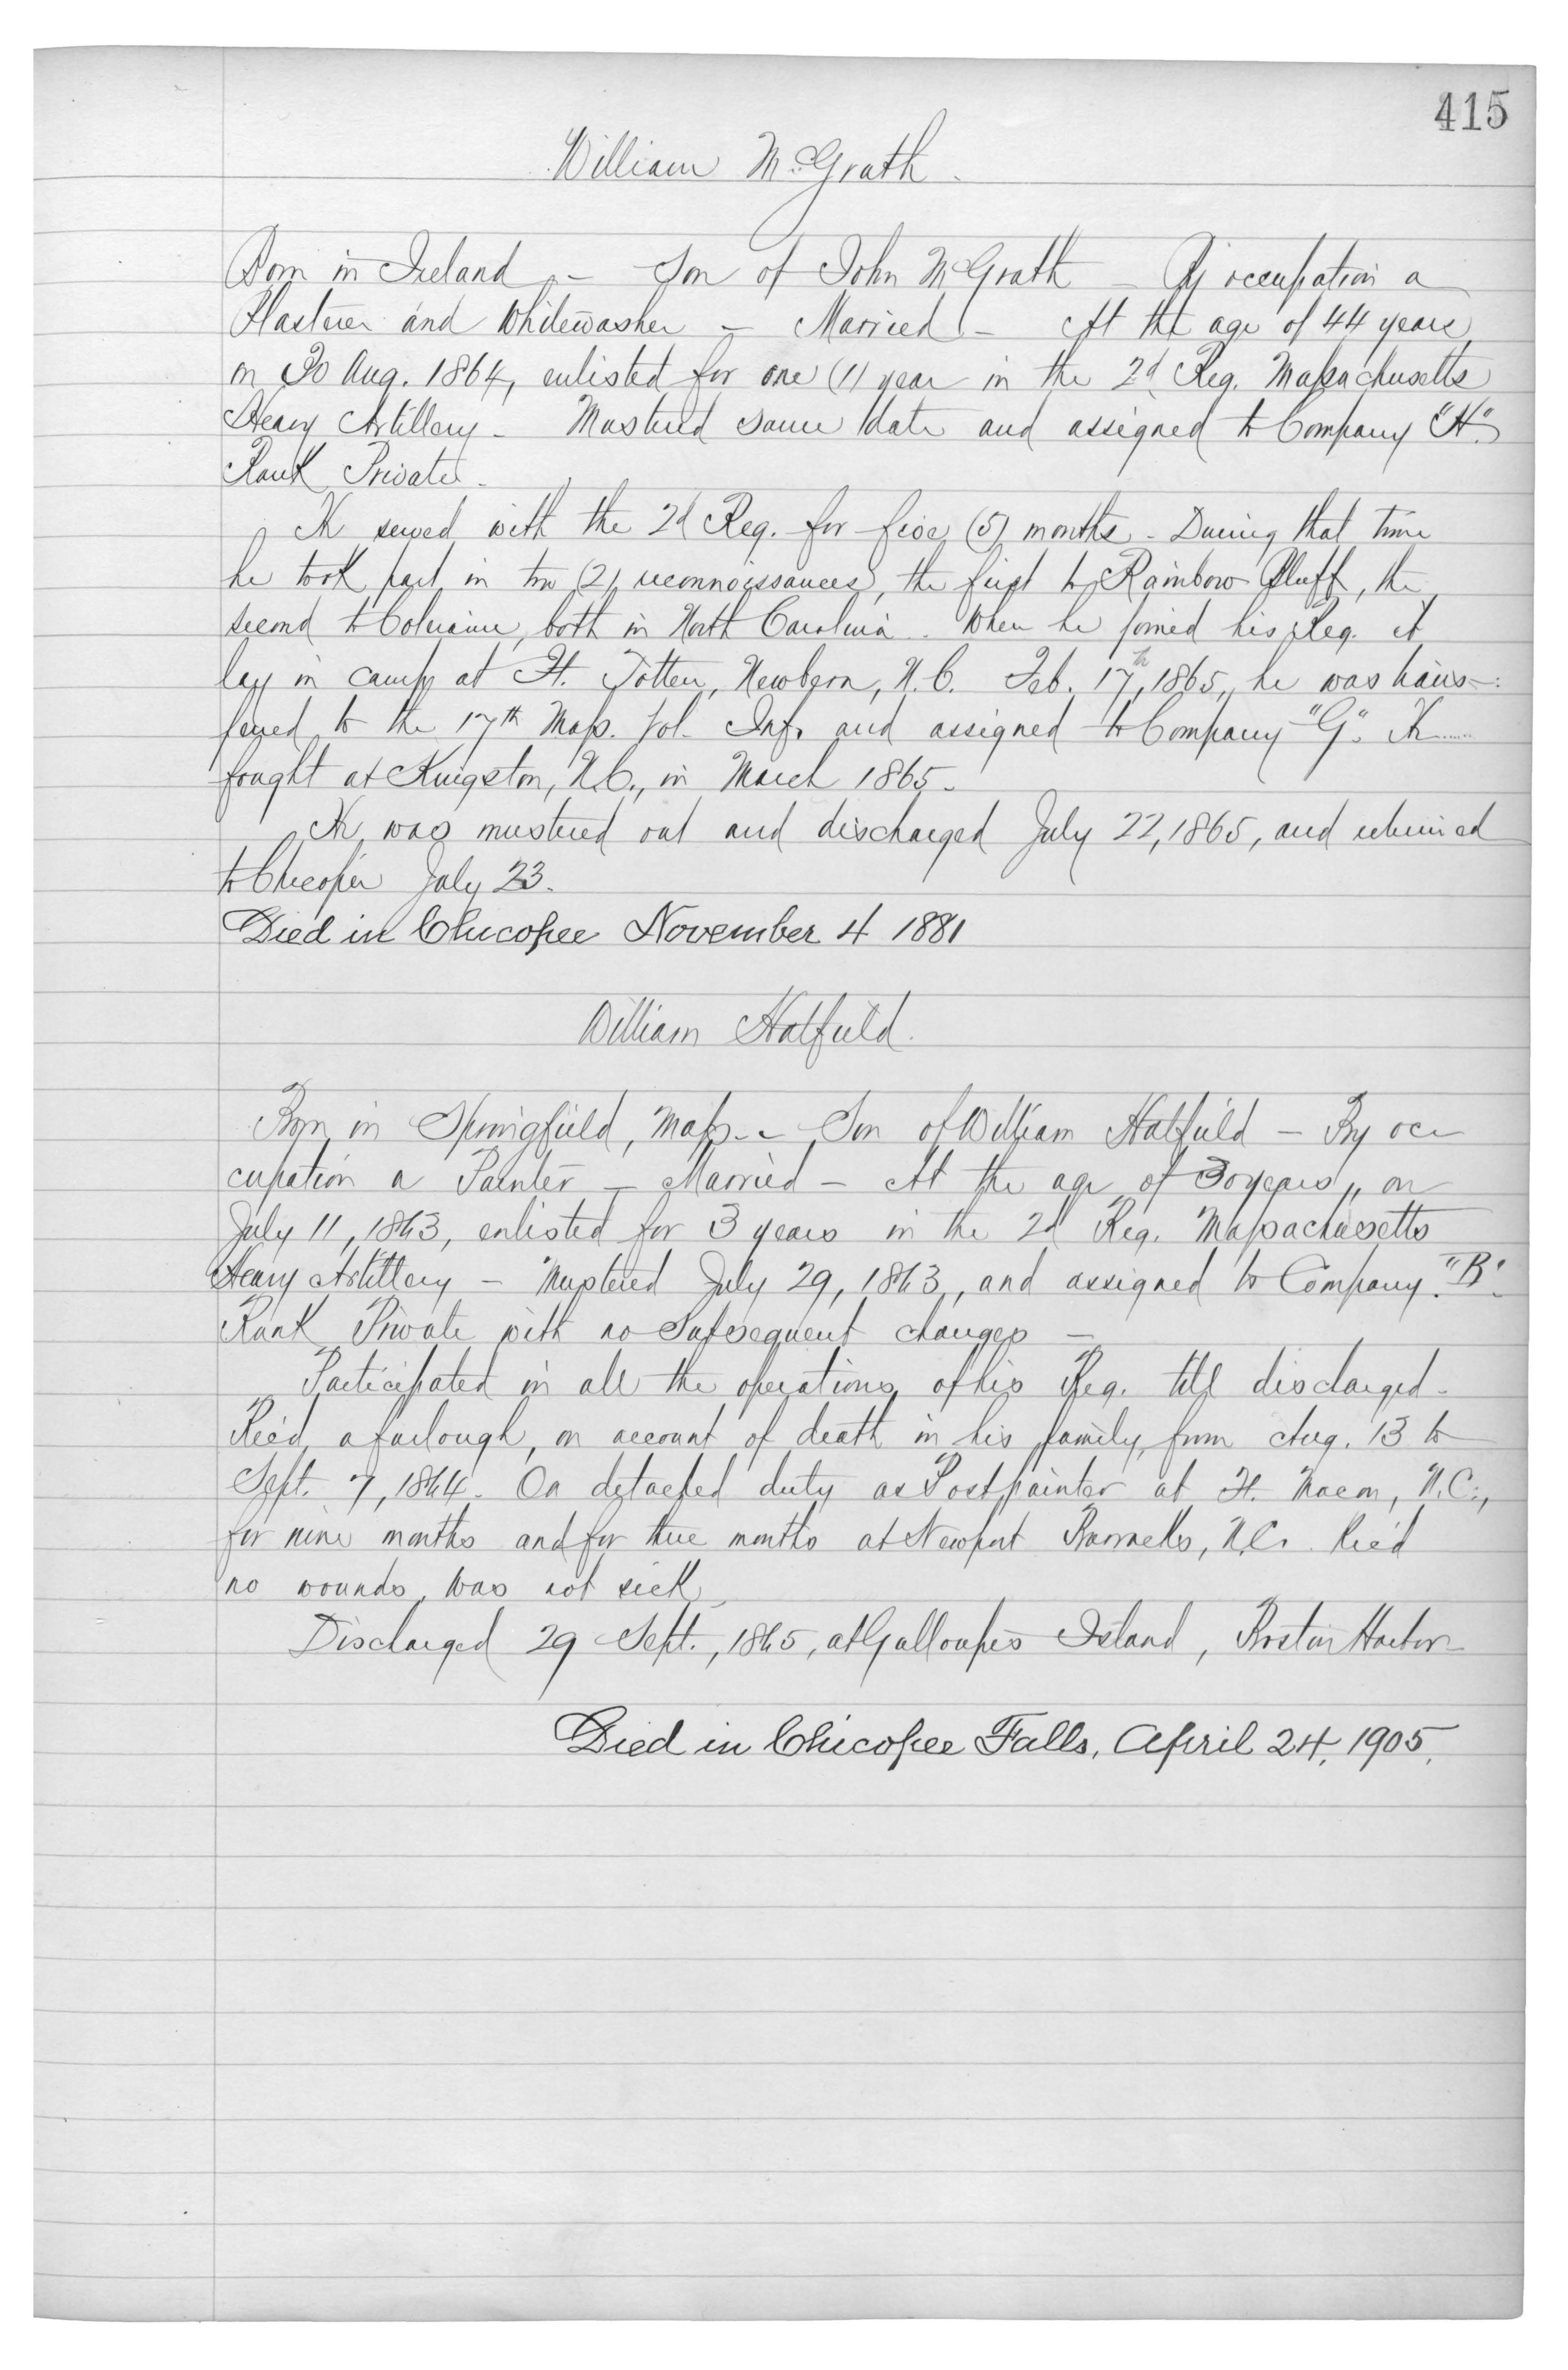 415
William McGrath.
Born in Ireland, – Son of John McGrath – By occupation a
Plasterer and Whitewasher – Married – At the age of 44 years,
on 30 Aug. 1864, enlisted for one (1) year in the 2d Reg. Massachusetts
Heavy Artillery – Mustered same date and assigned to Company "H".
Rank Private –
He served with the 2d Reg. for five (5) months – During that time
he took part in two (2) reconnoissances, the first to Rainbow Bluff, the
second to Coleraine, both in North Carolina. When he joined his Reg. it
lay in camp at Ft. Totten, Newbern, N.C. Feb. 17th, 1865, he was trans-
ferred to the 17th Mass. Vol. Inf. and assigned to Company "G". He
fought at Kingston, N.C., in March 1865.
He was mustered out and discharged July 22, 1865, and returned
to Chicopee July 23.
Died in Chicopee November 4 1881
William Hatfield.
Born in Springfield, Mass. – Son of William Hatfield – By oc-
cupation a Painter – Married – At the age of 30 years, on
July 11, 1863, enlisted for 3 years in the 2d Reg. Massachusetts
Heavy Artillery – Mustered July 29, 1863, and assigned to Company "B".
Rank Private with no subsequent changes –
Participated in all the operations of his Reg. till discharged.
Rec'd a furlough, on account of death in his family, from Aug. 13 to
Sept. 7, 1864. On detached duty as Post painter at Ft. Macon, N.C.,
for nine months and for three months at Newport Barracks, N.C. Rec'd
no wounds, was not sick.
Discharged 29 Sept., 1865, at Galloupes Island, Boston Harbor
Died in Chicopee Falls, April 24, 1905.